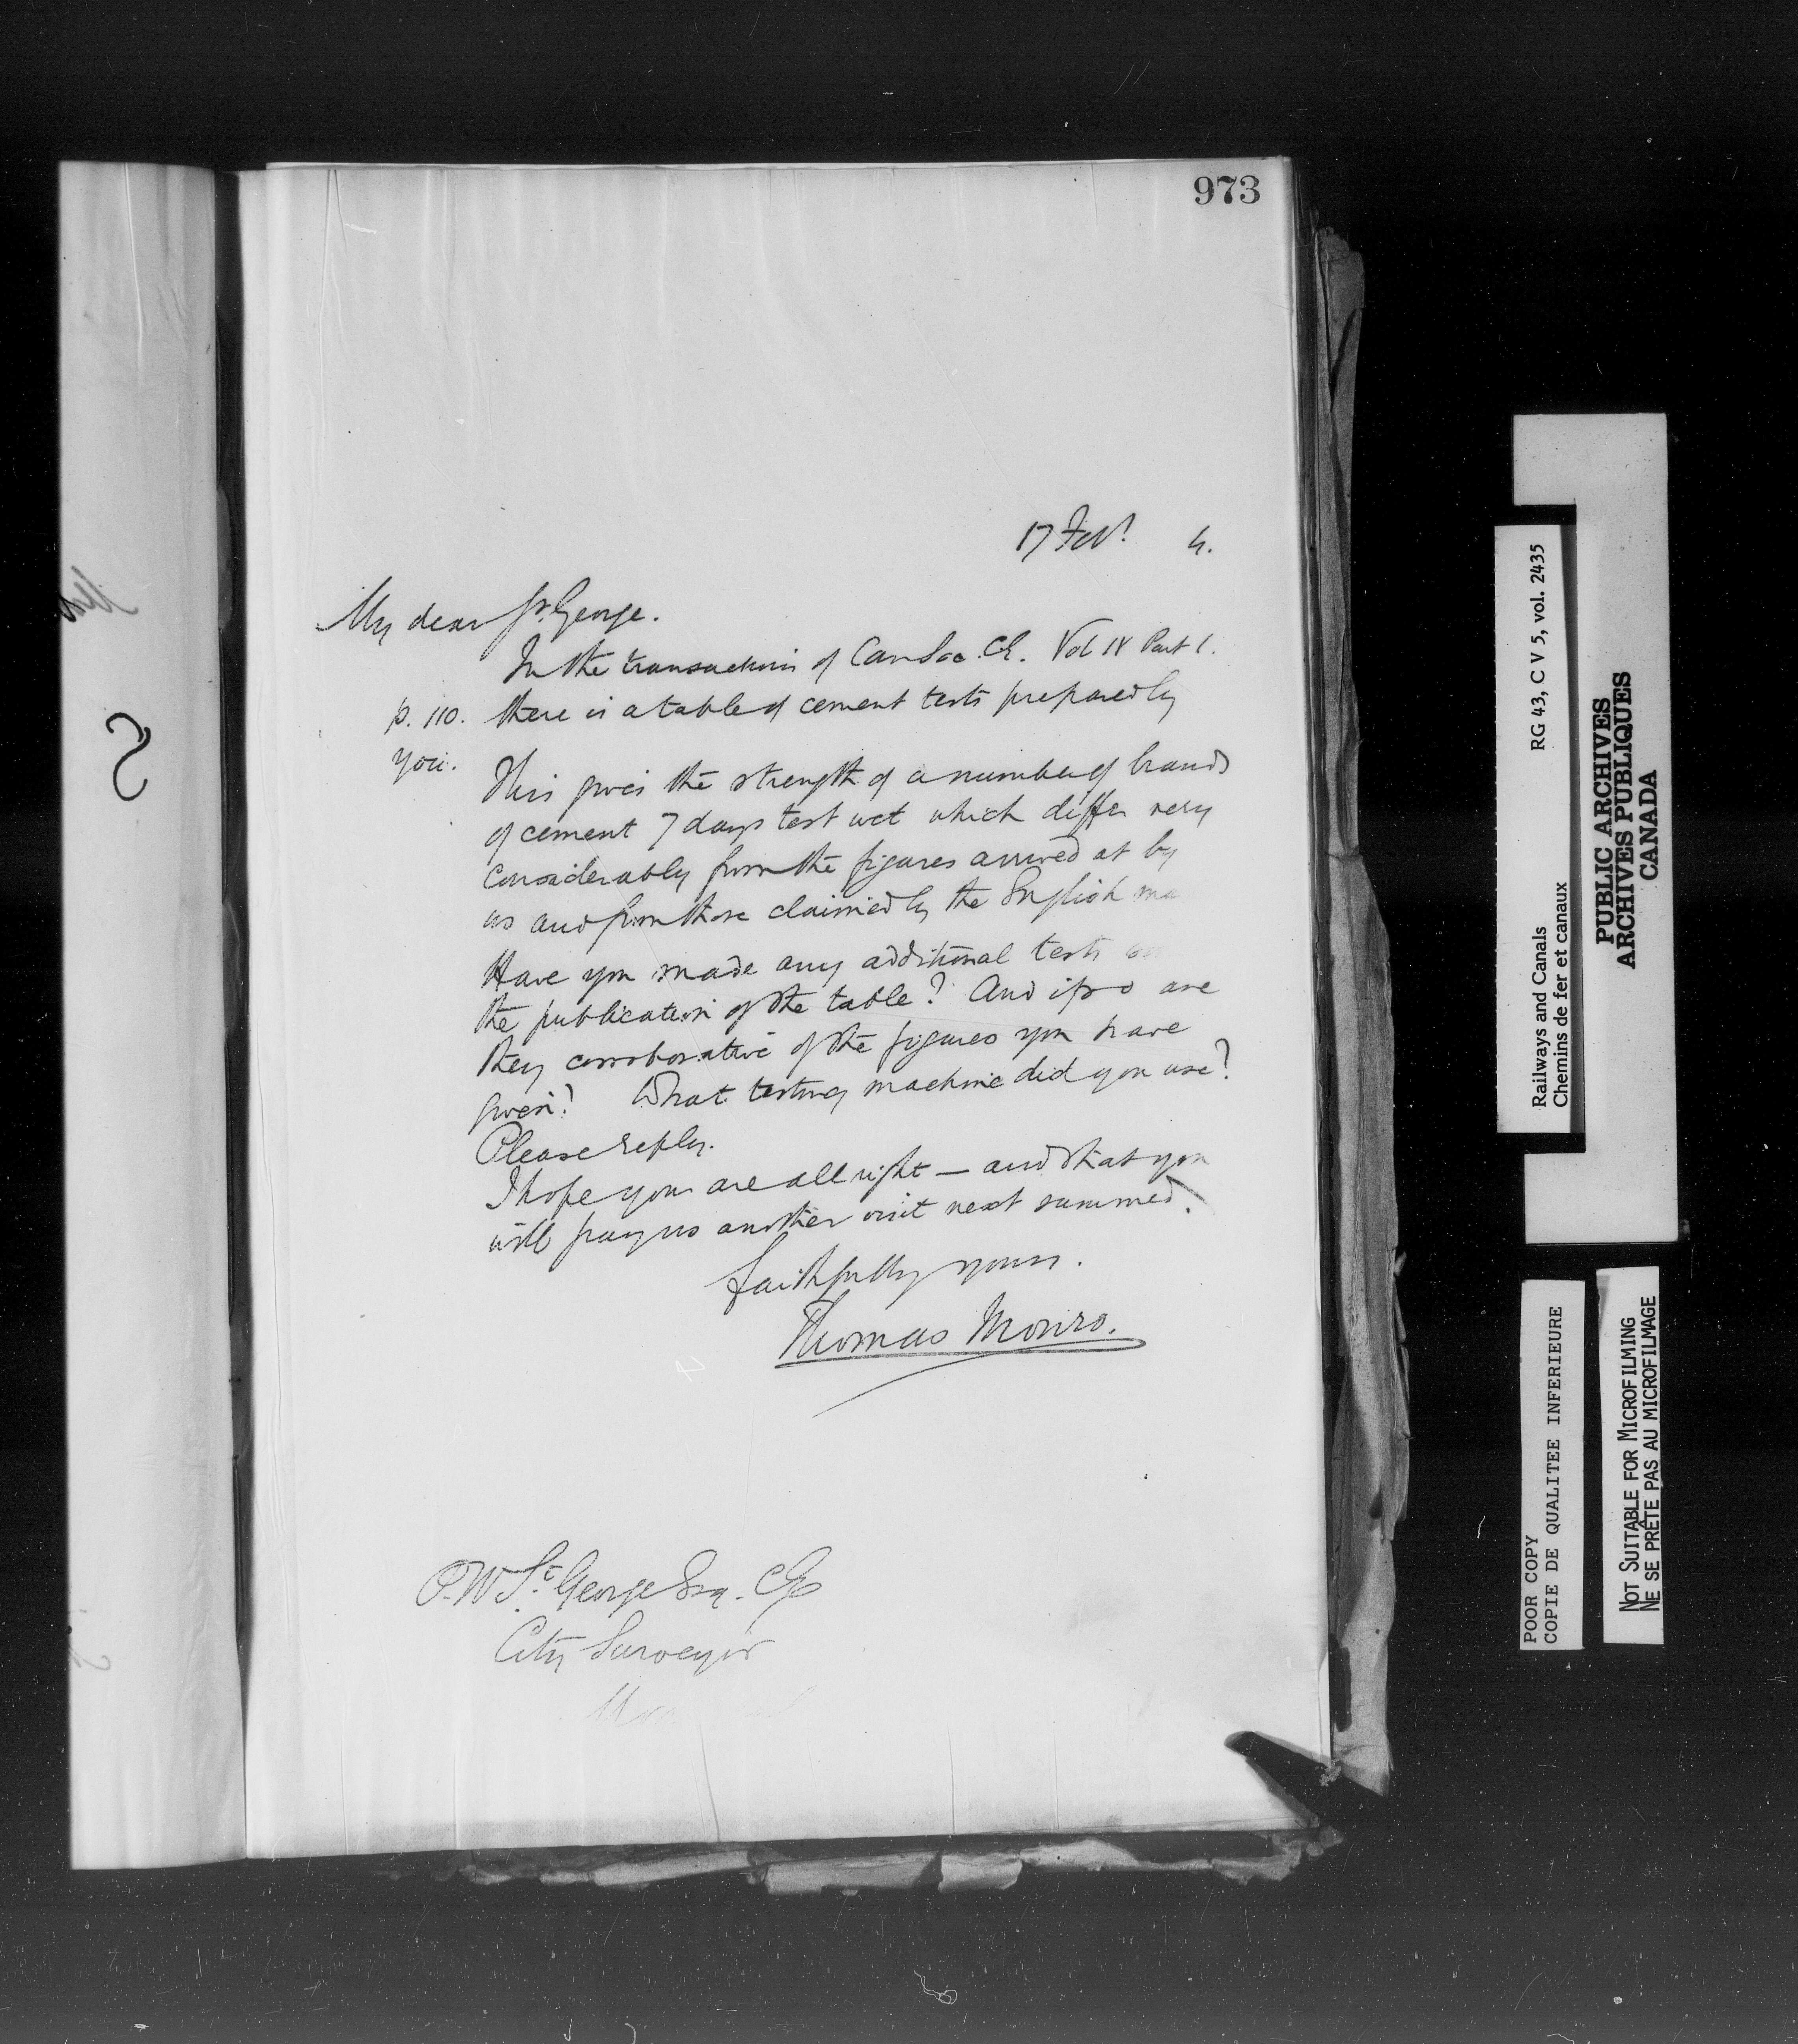 973
17 Feb! 4.
My dear St. George.
In the transactions of Can Soc. C.E. Vol IV Part 1.
p. 110. there is a table of cement tests prepared by
you.
This gives the strength of a number of brands
of cement 7 days test wet which differ very
considerably from the figures arrived at by
us and from those claimed by the English ma
Have you made any additional tests
the publication of the table? And if so are
they corroborative of the figures you have
given? What testing machine did you use?
Please reply.
I hope you are all right — and that you
will pay us another visit next summer.
Faithfully yours.
Thomas Monro.
P. W. St. George Esq. C.E.
City Surveyor
RG 43, C V 5, vol. 2435
Railways and Canals
Chemins de fer et canaux
PUBLIC ARCHIVES
ARCHIVES PUBLIQUES
CANADA
POOR COPY
COPIE DE QUALITEE INFERIEURE
NOT SUITABLE FOR MICROFILMING
NE SE PRÊTE PAS AU MICROFILMAGE